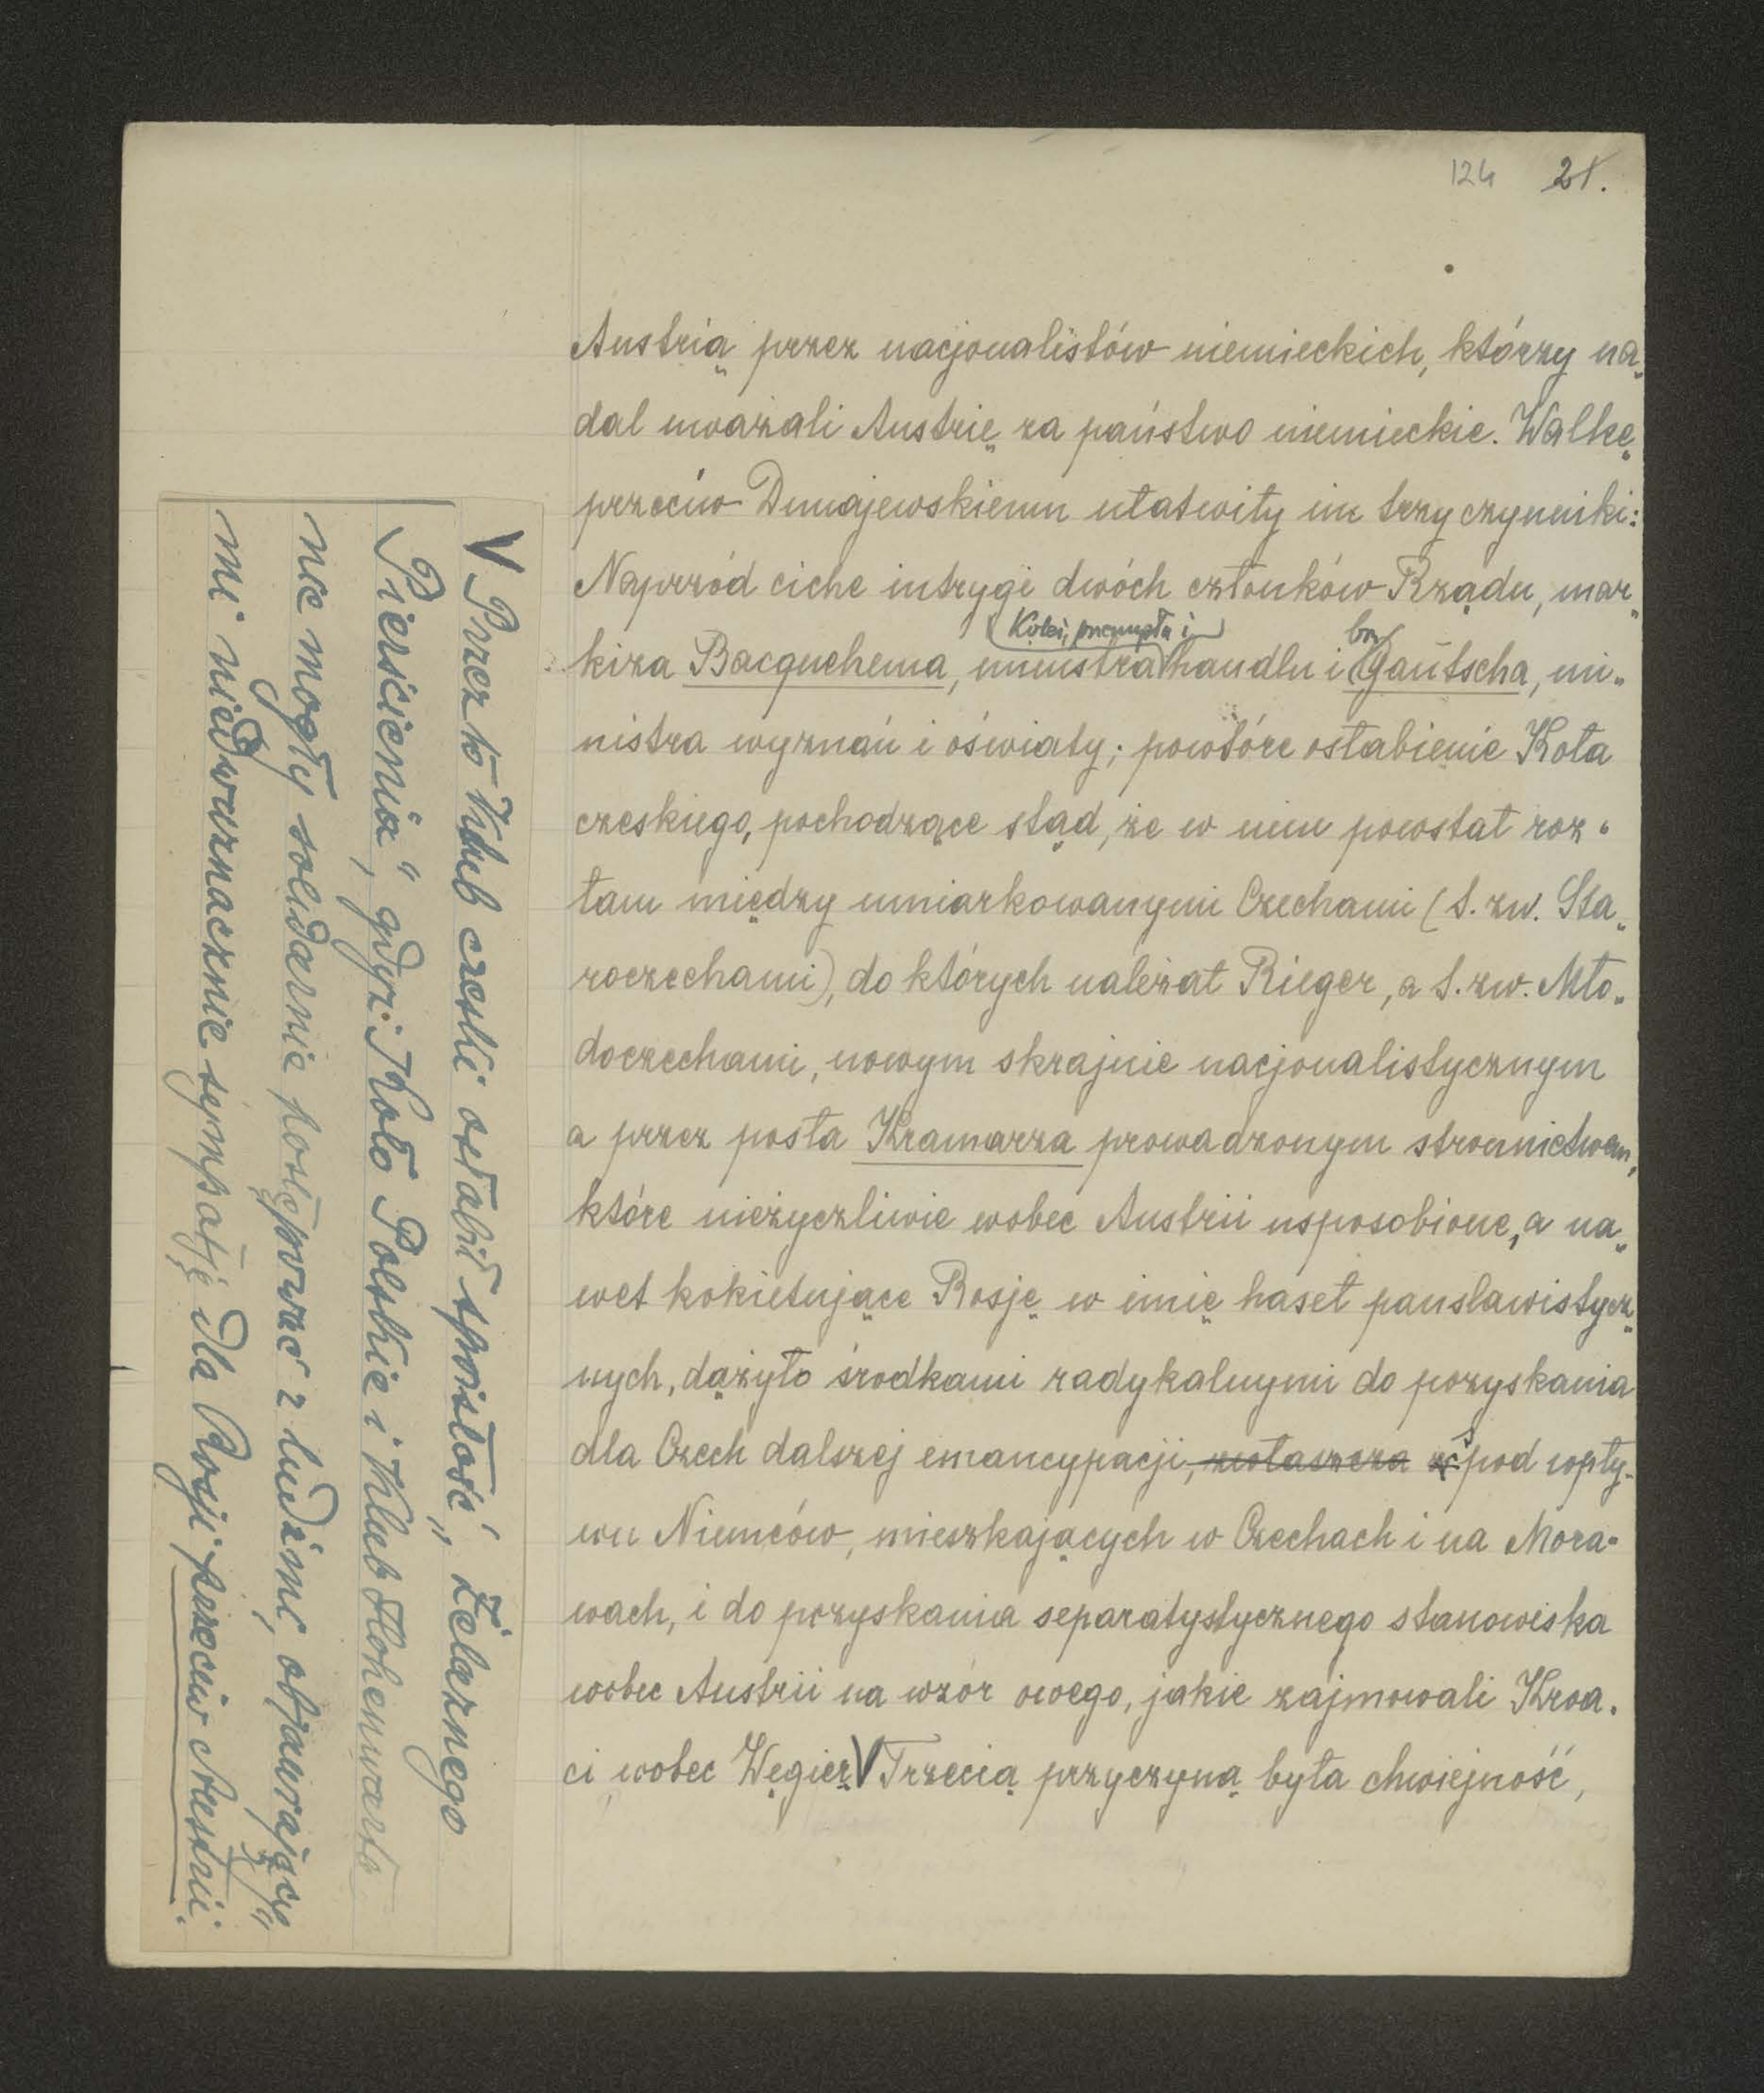 124 21.
Austrią przez nacjonalistów niemieckich, którzy na„
dal uważali Austrię za państwo niemieckie. Walkę
przeciw Dunajewskiemu ułatwiły im trzy czynniki:
Naprzód ciche intrygi dwóch członków Rządu, mar„
Kolei, przemysłu i br.
kiza Bacquehema, ministra handlu i Gautscha, mi„
nistra wyznań i oświaty; powtóre osłabienie Koła
czeskiego, pochodzące stąd, że w nim powstał roz„
łam między umiarkowanymi Czechami (t. zw. Sta„
roczechami), do których należał Rieger, a t. zw. Mło„
doczechami, nowym skrajnie nacjonalistycznym
a przez posła Kramarza prowadzonym stronnictwem,
które nieżyczliwie wobec Austrii usposobione, a na„
wet kokietujące Rosję w imię haseł panslawistycz„
nych, dążyło środkami radykalnymi do pozyskania
dla Czech dalszej emancypacji, zwłaszcza z spod wpły-
wu Niemców, mieszkających w Czechach i na Mora-
wach, i do pozyskania separatystycznego stanowiska
wobec Austrii na wzór owego, jakie zajmowali Kroa-
ci wobec Węgier V Trzecią przyczyną była chwiejność,
V Przez to Klub czeski osłabił spoistość „Żelaznego
Pierścienia", gdyż i Koło Polskie i Klub Hohenwarta
nie mogły solidarnie postępować z ludźmi, objawiający„
mi niedwuznacznie sympatję dla Rosji przeciw Austrii.